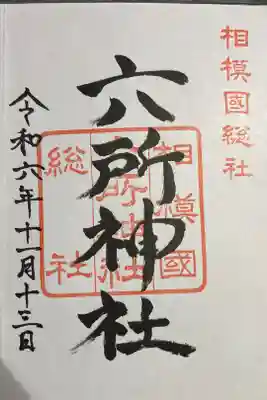 相模國総社
六所神社
相模國
六所神社
総社
令和六年十一月十三日